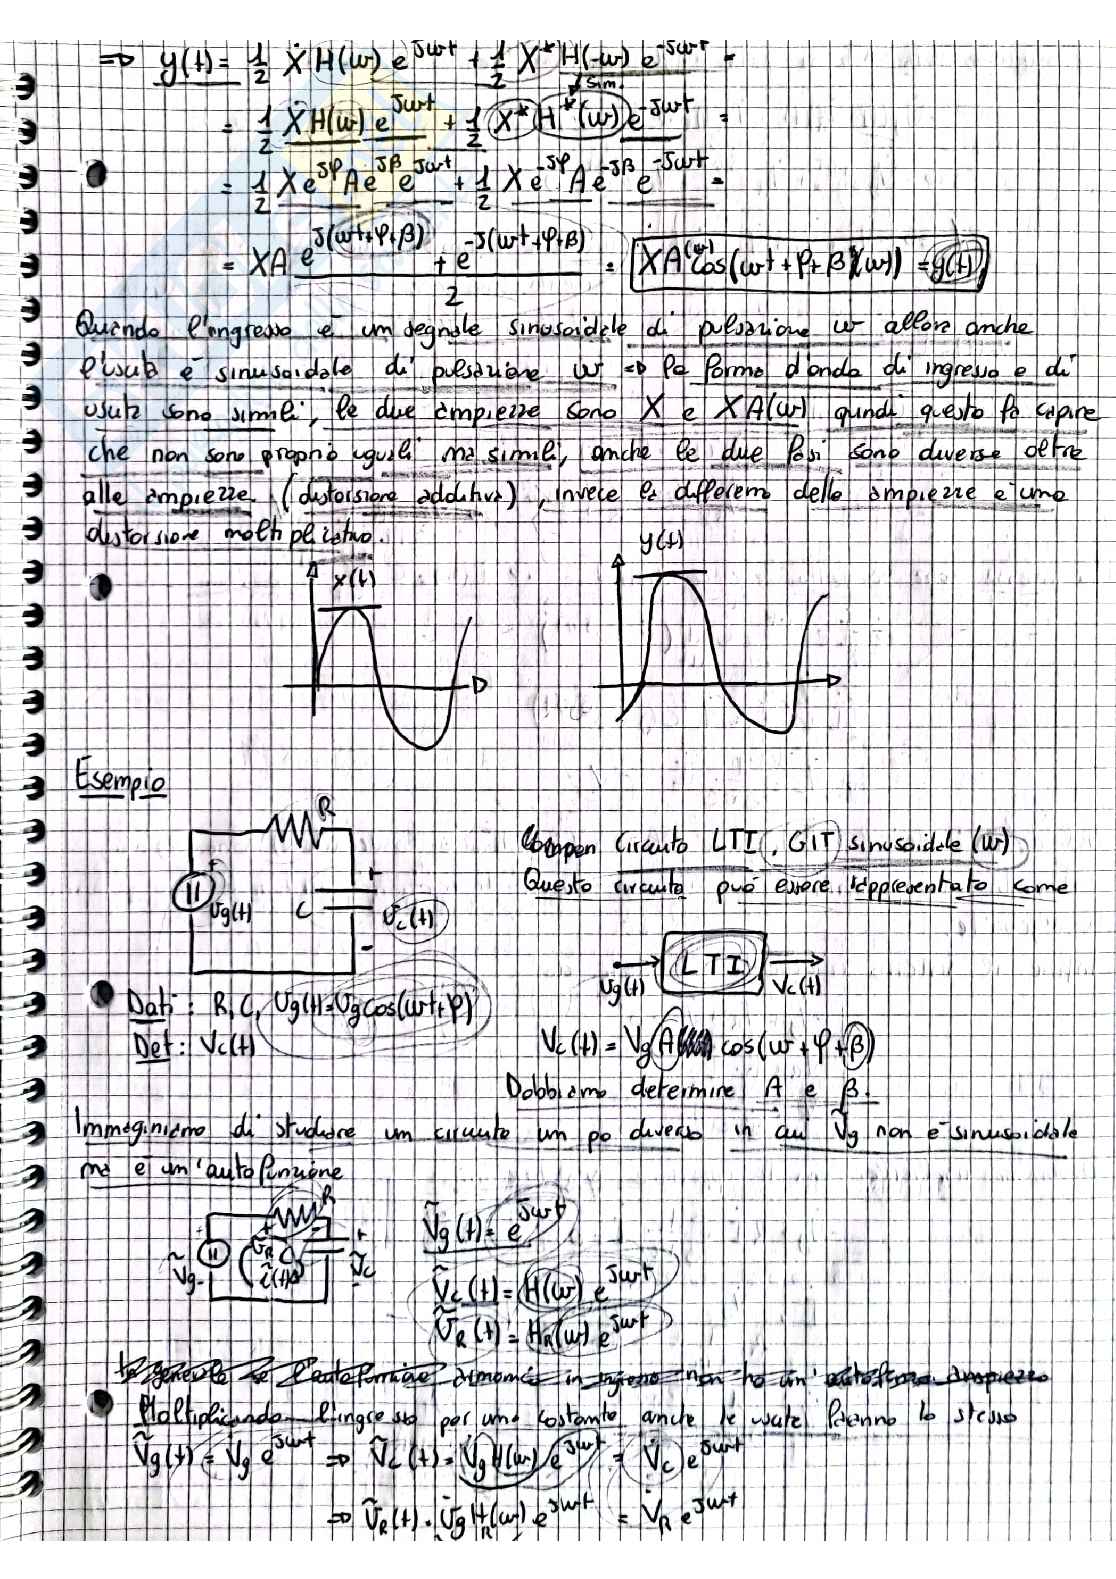 ⇒ y(t) = 1/2 Ẋ H(ω) e^jωt + 1/2 X* H(-ω) e^-jωt =
↓ sim.
= 1/2 Ẋ H(ω) e^jωt + 1/2 X* H*(ω) e^-jωt =
= 1/2 X e^jφ A e^jβ e^jωt + 1/2 X e^-jφ A e^-jβ e^-jωt =
= XA (e^j(ωt+φ+β) + e^-j(ωt+φ+β)) / 2 = XA(ω) cos(ωt + φ + β(ω)) = y(t)
Quando l'ingresso è un segnale sinusoidale di pulsazione ω allora anche
l'uscita è sinusoidale di pulsazione ω ⇒ le forme d'onda di ingresso e di
uscita sono simili, le due ampiezze sono X e XA(ω) quindi questo fa capire
che non sono proprio uguali ma simili, anche le due fasi sono diverse oltre
alle ampiezze (distorsione additiva), invece la differenza delle ampiezze è una
distorsione moltiplicativa.
x(t) y(t)
Esempio
R
+ vg(t) C + vc(t) -
Circuito LTI, GIT sinusoidale (ω)
Questo circuito può essere rappresentato come
vg(t) LTI Vc(t)
Dati: R, C, Vg(t)=Vg cos(ωt+φ)
Det: Vc(t)
Vc(t) = Vg A cos(ω + φ + β)
Dobbiamo determine A e β.
Immaginiamo di studiare un circuito un po diverso in cui Ṽg non è sinusoidale
ma è un'autofunzione
R
Ṽg - + ṽR - C ĩ(t) + Ṽc -
Ṽg(t) = e^jωt
Ṽc(t) = H(ω) e^jωt
ṼR(t) = HR(ω) e^jωt
Moltiplicando l'ingresso per una costante anche le uscite fanno lo stesso
Ṽg(t) = V̇g e^jωt ⇒ Ṽc(t) = V̇g H(ω) e^jωt = V̇c e^jωt
⇒ ṼR(t) = V̇g HR(ω) e^jωt = V̇R e^jωt